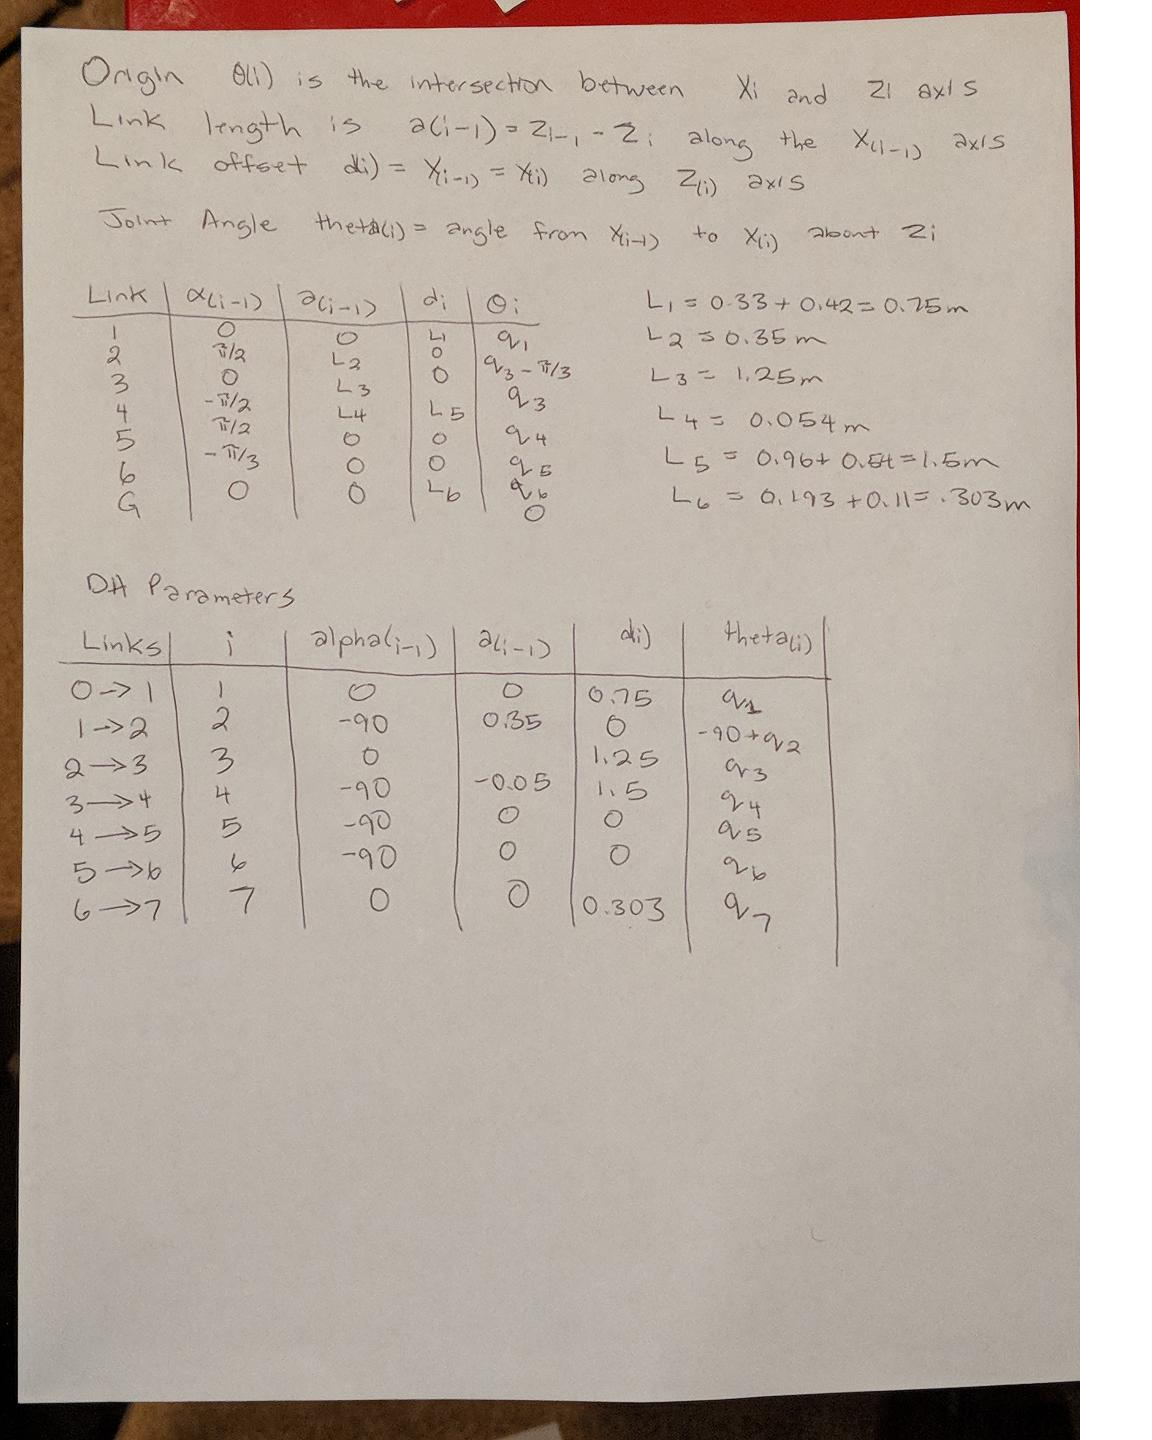 Origin θ(i) is the intersection between Xi and Zi axis
Link length is a(i-1) = Zi-1 - Zi along the X(i-1) axis
Link offset di) = X(i-1) = X(i) along Z(i) axis
Joint Angle theta(i) = angle from X(i-1) to X(i) about Zi
Link α(i-1) a(i-1) di θi
1 0 0 L1 q1
2 π/2 L2 0 q3 - π/3
3 0 L3 0 q3
4 -π/2 L4 L5 q4
5 π/2 0 0 q5
6 -π/3 0 0 q6
G 0 0 L6 0
L1 = 0.33 + 0.42 = 0.75m
L2 = 0.35m
L3 = 1.25m
L4 = 0.054m
L5 = 0.96 + 0.54 = 1.5m
L6 = 0.193 + 0.11 = .303m
DH Parameters
Links i alpha(i-1) a(i-1) di) theta(i)
0->1 1 0 0 0.75 q1
1->2 2 -90 0.35 0 -90+q2
2->3 3 0 1.25 q3
3->4 4 -90 -0.05 1.5 q4
4->5 5 -90 0 0 q5
5->6 6 -90 0 0 q6
6->7 7 0 0 0.303 q7